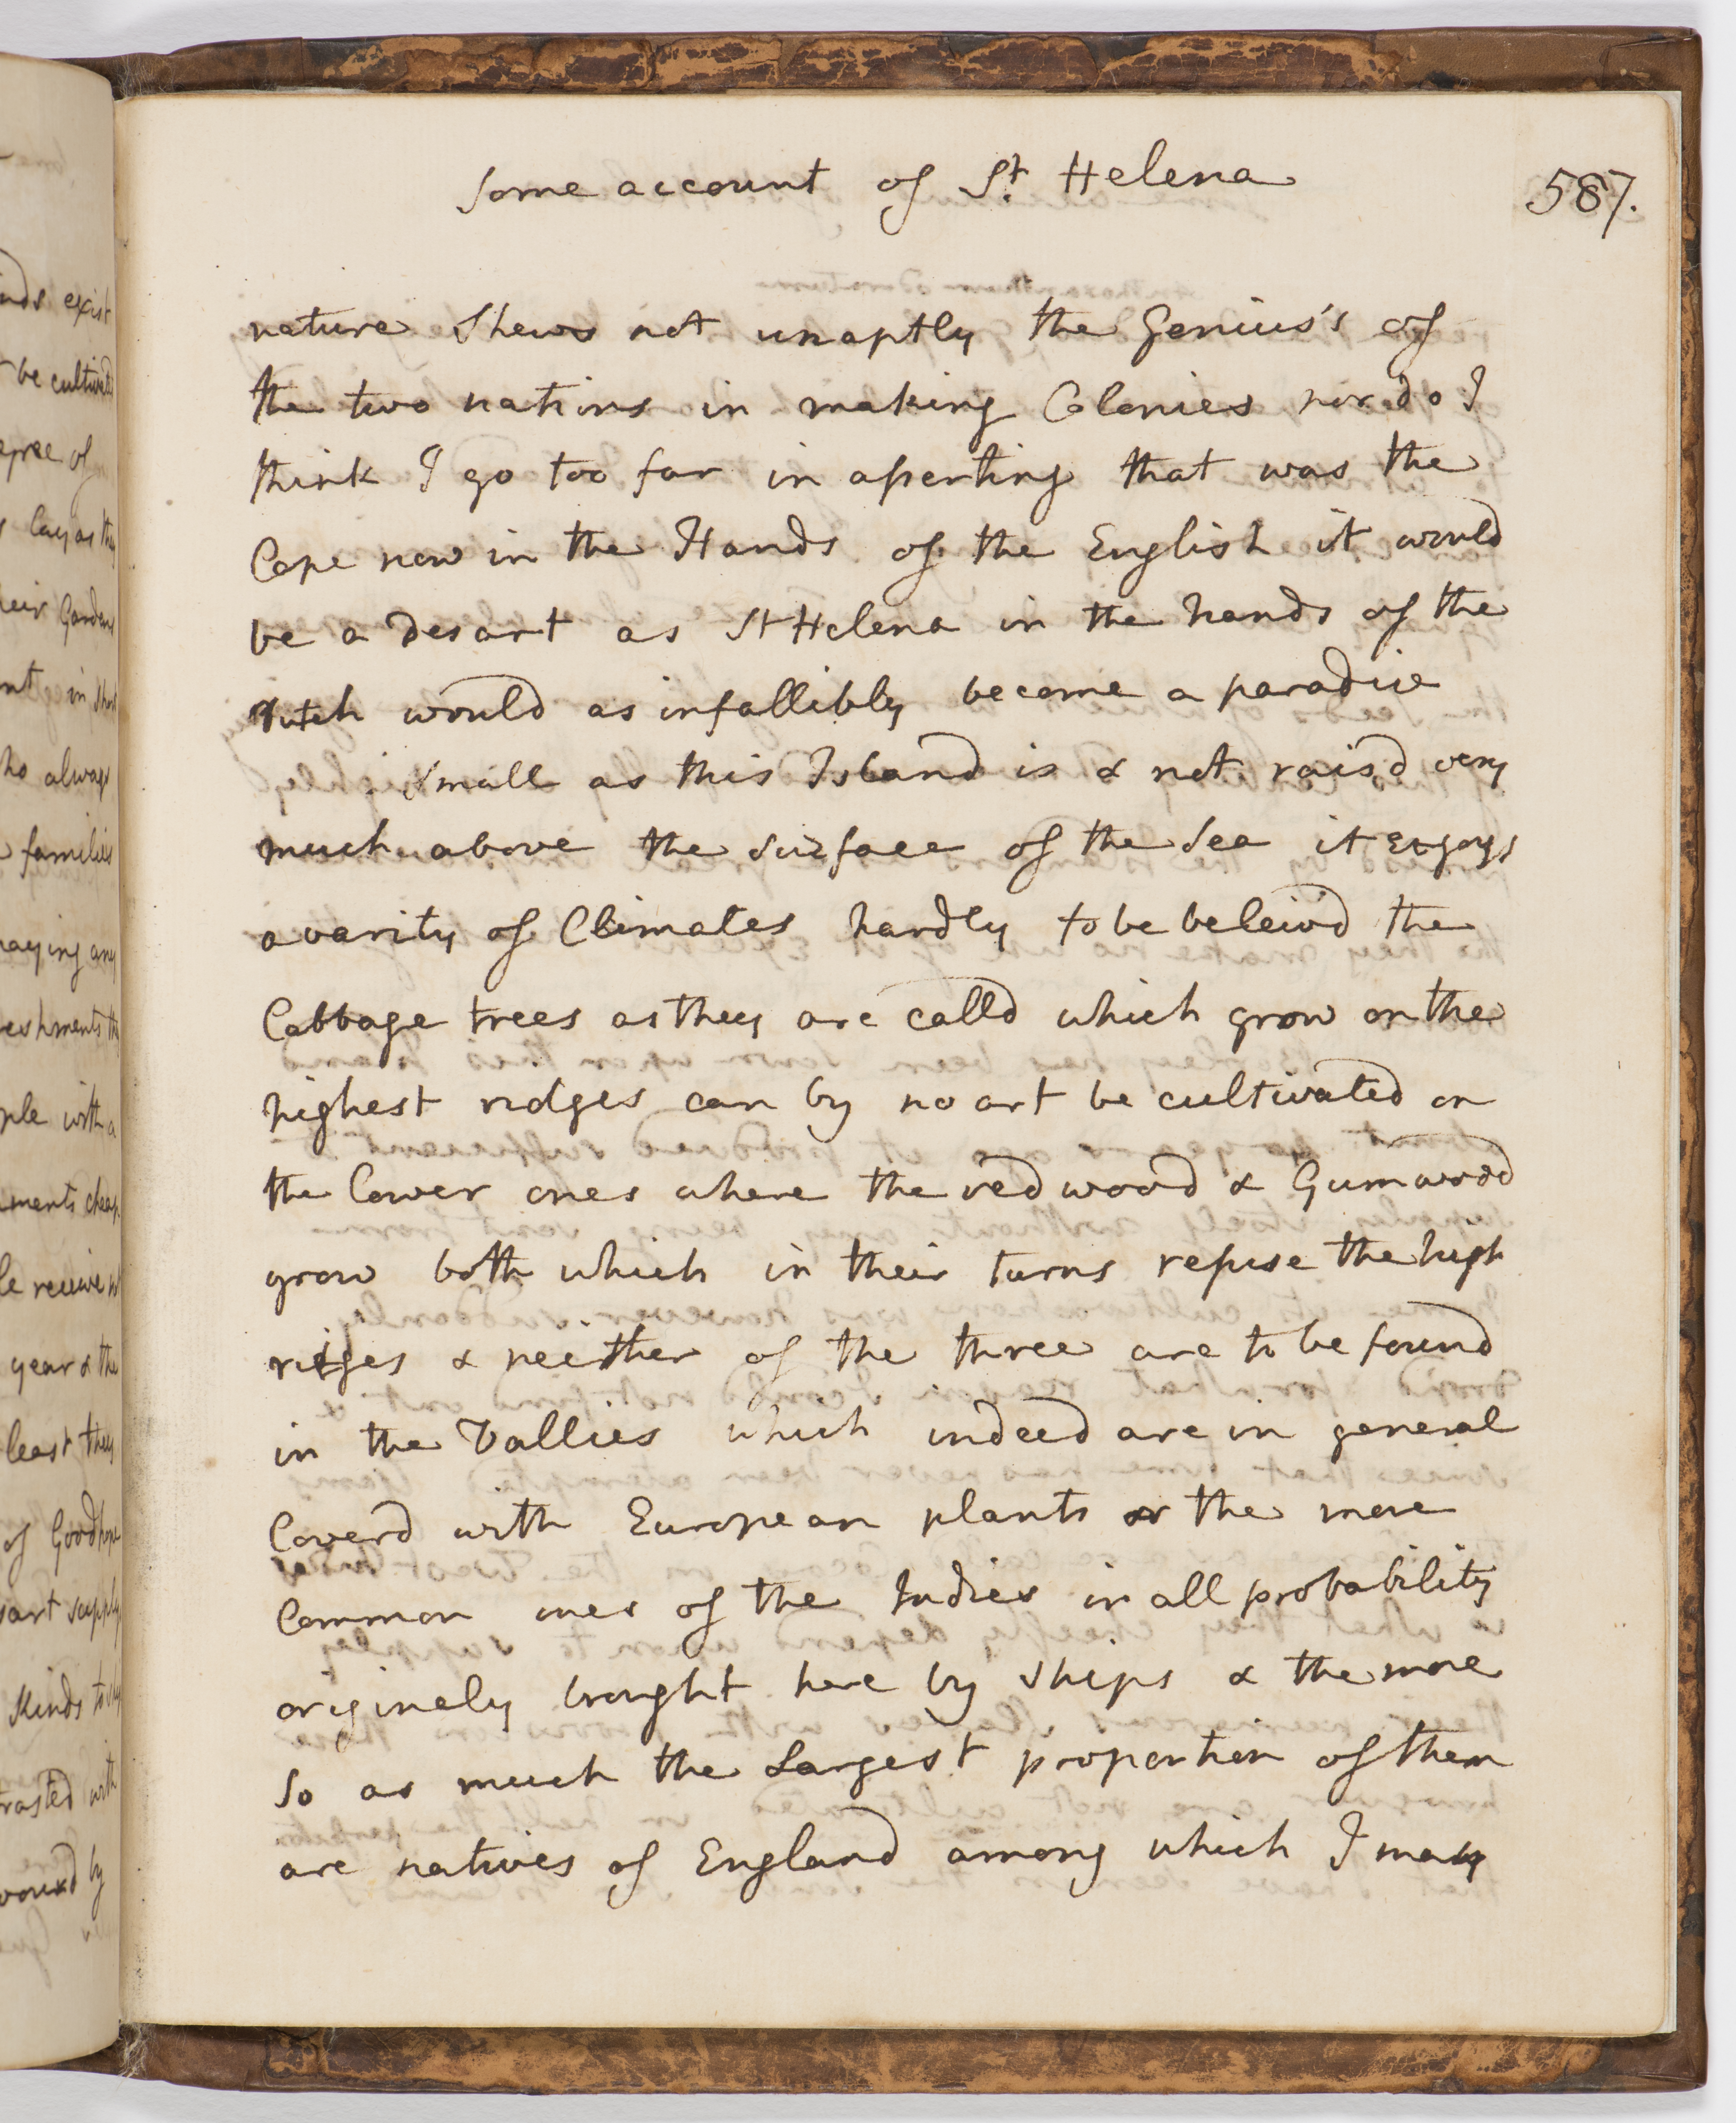 Some account of St. Helena
587.
nature Shews not unaptly the Genius's of
the two nations in making Colonies nor do I
think I go too far in asserting that was the
Cape now in the Hands of the English it would
be a Desart as St Helena in the hands of the
Dutch would as infallibly become a paradise
Small as this Island is & not rais'd very
much above the surface of the Sea it enjoys
a varity of Climates hardly to be beleivd the
Cabbage trees as they are calld which grow on the
highest ridges can by no art be cultivated on
the lower ones where the red wood & Gumwood
grow both which in their turns refuse the high
ridges & neither of the three are to be found
in the Vallies which indeed are in general
Coverd with European plants or the more
Common ones of the Indies in all probability
originely brought here by ships & the more
So as much the Largest proportion of them
are natives of England among which I may
nds exist
be cultivated
egree of
lay as they
heir Gardens
nt in short
ho always
families
paying any
reshments th
ple with a
ments cheap
le receive
year & the
least they
of Good hope
sart supply
Kinds to
rasted with
by